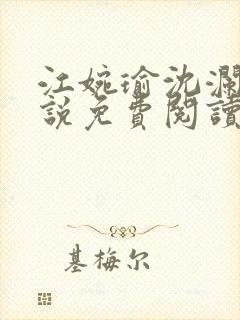 江婉瑜沈瀾
說免費閱讀
基梅尔